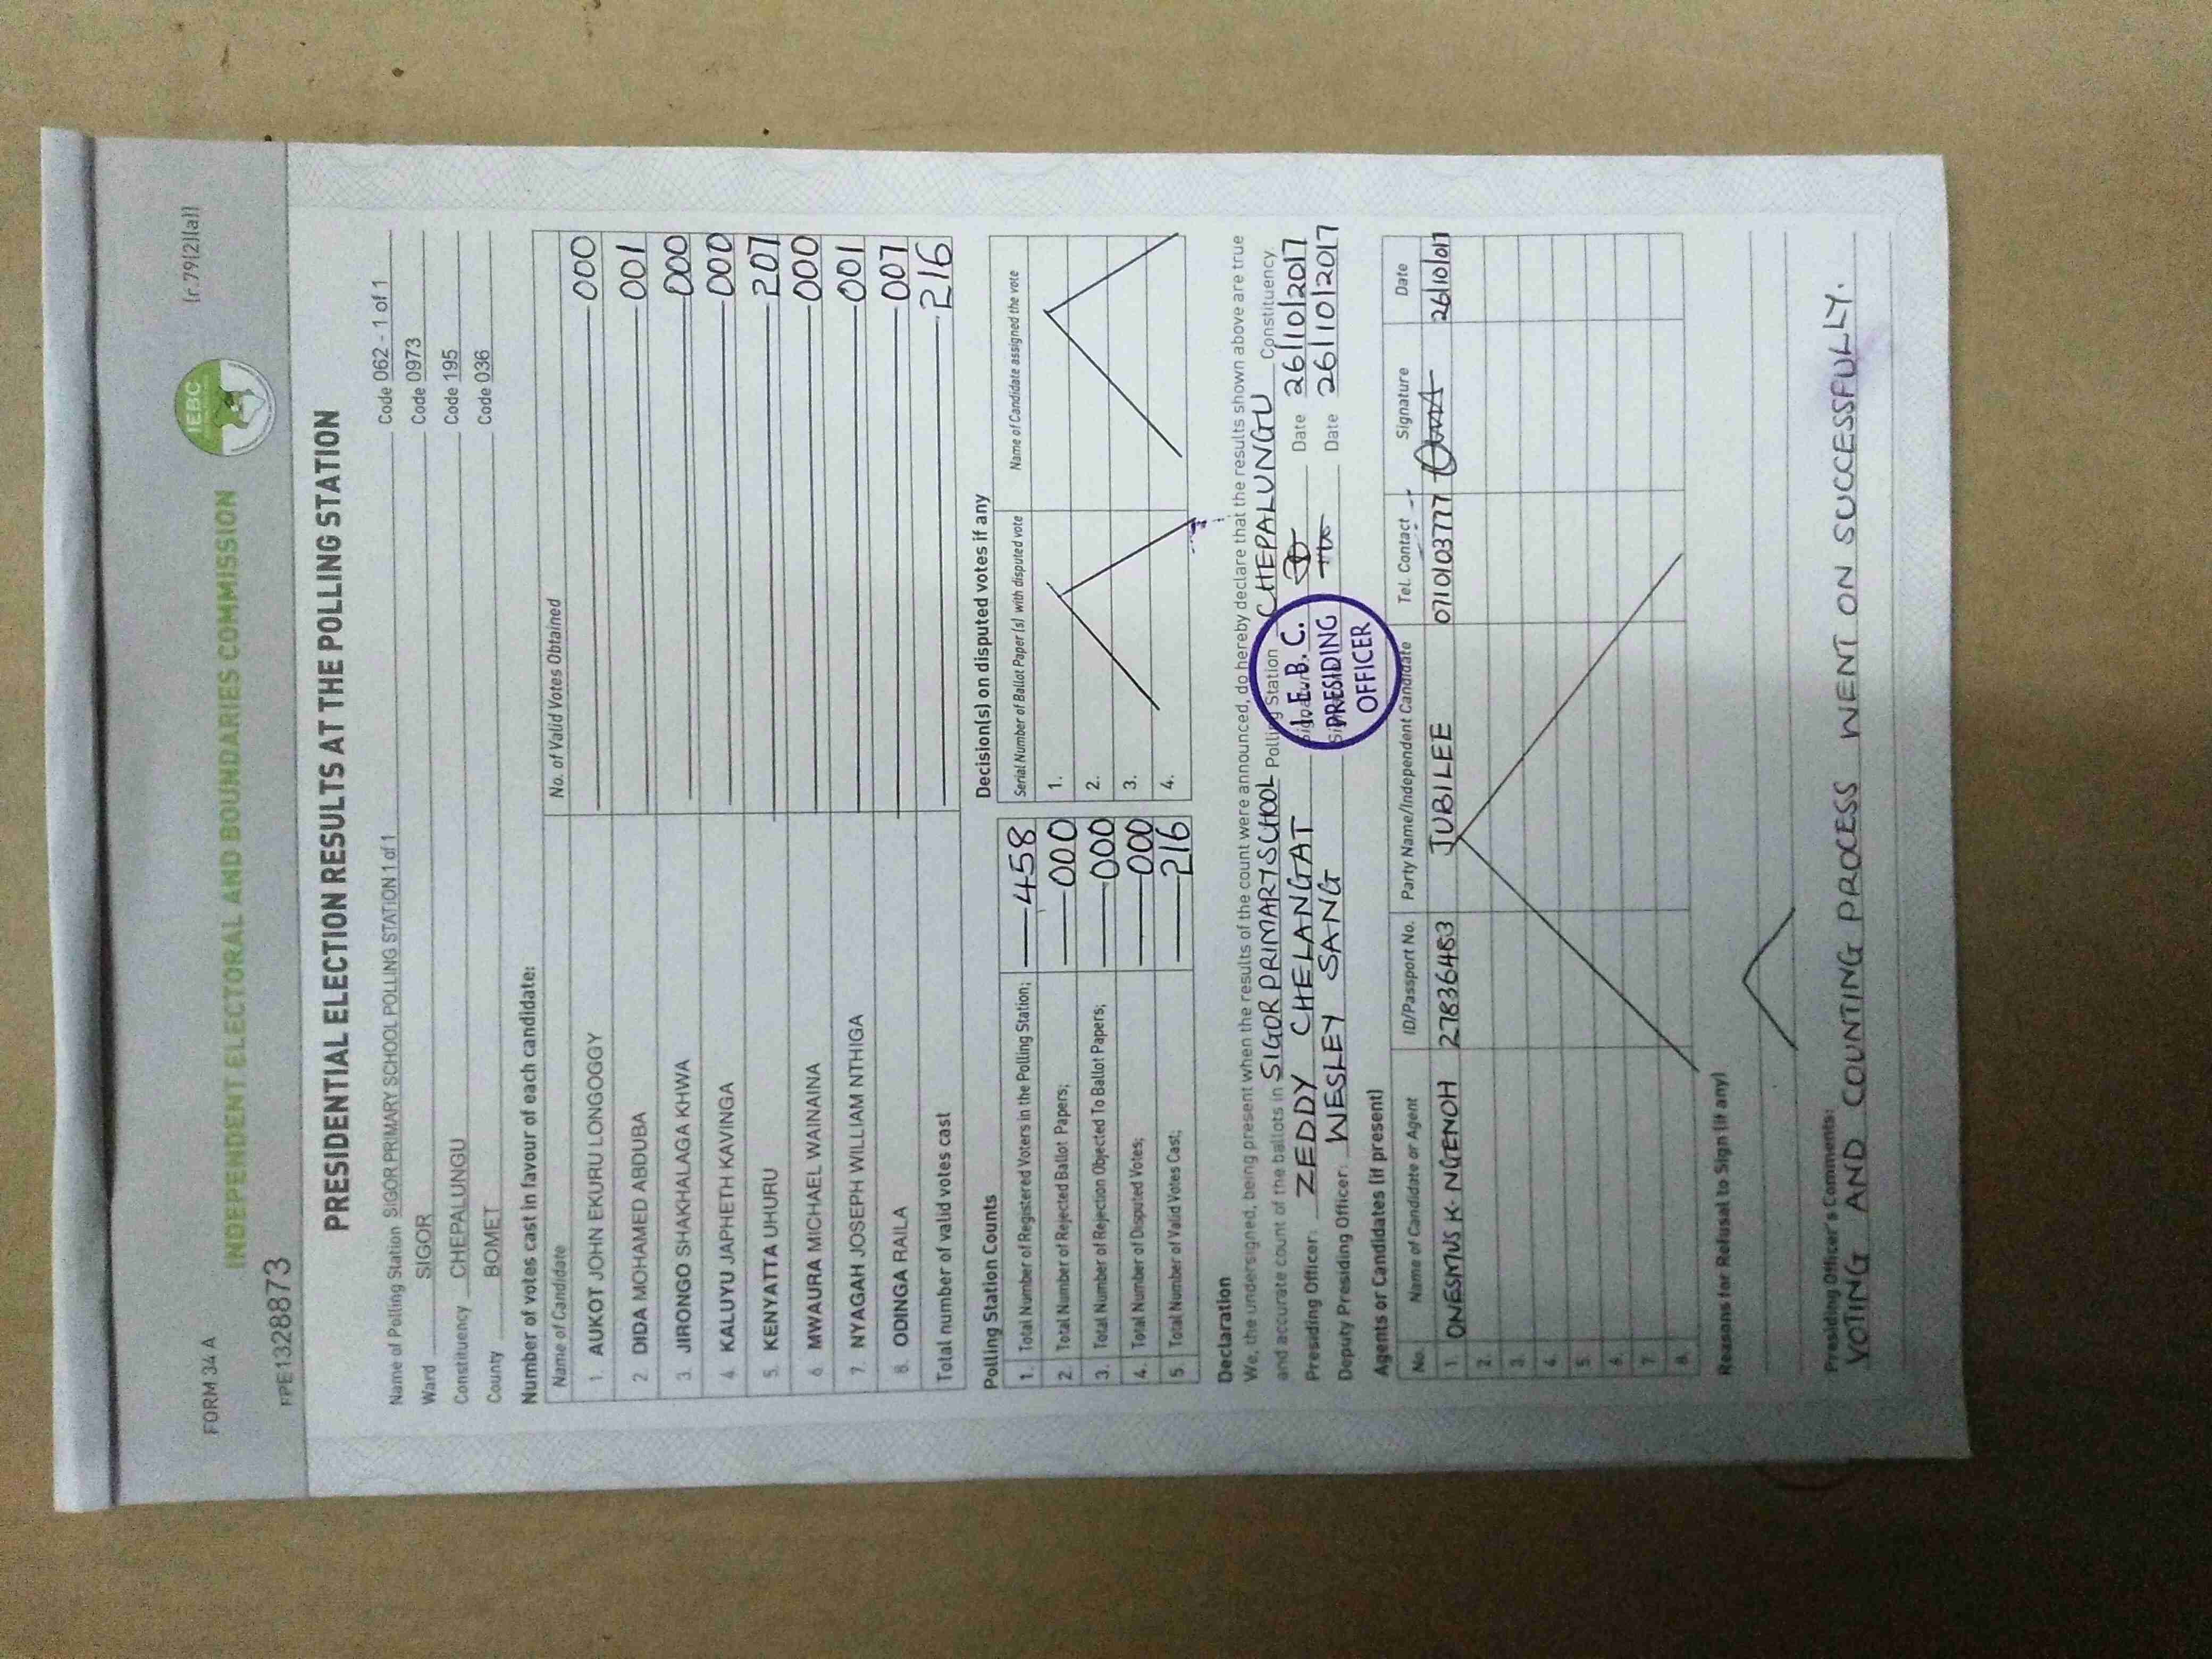 FORM 34 A
[r.79(2)(a)]
INDEPENDENT ELECTORAL AND BOUNDARIES COMMISSION
IEBC
FPE1328873
PRESIDENTIAL ELECTION RESULTS AT THE POLLING STATION
Name of Polling Station SIGOR PRIMARY SCHOOL POLLING STATION 1 of 1 Code 062 - 1 of 1
Ward SIGOR Code 0973
Constituency CHEPALUNGU Code 195
County BOMET Code 036
Number of votes cast in favour of each candidate:
Name of Candidate No. of Valid Votes Obtained
1. AUKOT JOHN EKURU LONGOGGY 000
2. DIDA MOHAMED ABDUBA 001
3. JIRONGO SHAKHALAGA KHWA 000
4. KALUYU JAPHETH KAVINGA 000
5. KENYATTA UHURU 207
6. MWAURA MICHAEL WAINAINA 000
7. NYAGAH JOSEPH WILLIAM NTHIGA 001
8. ODINGA RAILA 007
Total number of valid votes cast 216
Polling Station Counts
1. Total Number of Registered Voters in the Polling Station; 458
2. Total Number of Rejected Ballot Papers; 000
3. Total Number of Rejection Objected To Ballot Papers; 000
4. Total Number of Disputed Votes; 000
5. Total Number of Valid Votes Cast; 216
Decision(s) on disputed votes if any
Serial Number of Ballot Paper (s) with disputed vote Name of Candidate assigned the vote
1.
2.
3.
4.
Declaration
We, the undersigned, being present when the results of the count were announced, do hereby declare that the results shown above are true
and accurate count of the ballots in SIGOR PRIMARY SCHOOL Polling Station CHEPALUNGU Constituency.
Presiding Officer: ZEDDY CHELANGAT Signature Date 26/10/2017
Deputy Presiding Officer: WESLEY SANG Date 26/10/2017
I.E.B.C.
PRESIDING
OFFICER
Agents or Candidates (if present)
No. Name of Candidate or Agent ID/Passport No. Party Name/Independent Candidate Tel. Contact Signature Date
1. ONESMUS K. NGENOH 27836483 JUBILEE 0710103777 26/10/017
2.
3.
4.
5.
6.
7.
8.
Reasons for Refusal to Sign (if any)
Presiding Officer's Comments:
VOTING AND COUNTING PROCESS WENT ON SUCCESSFULLY.